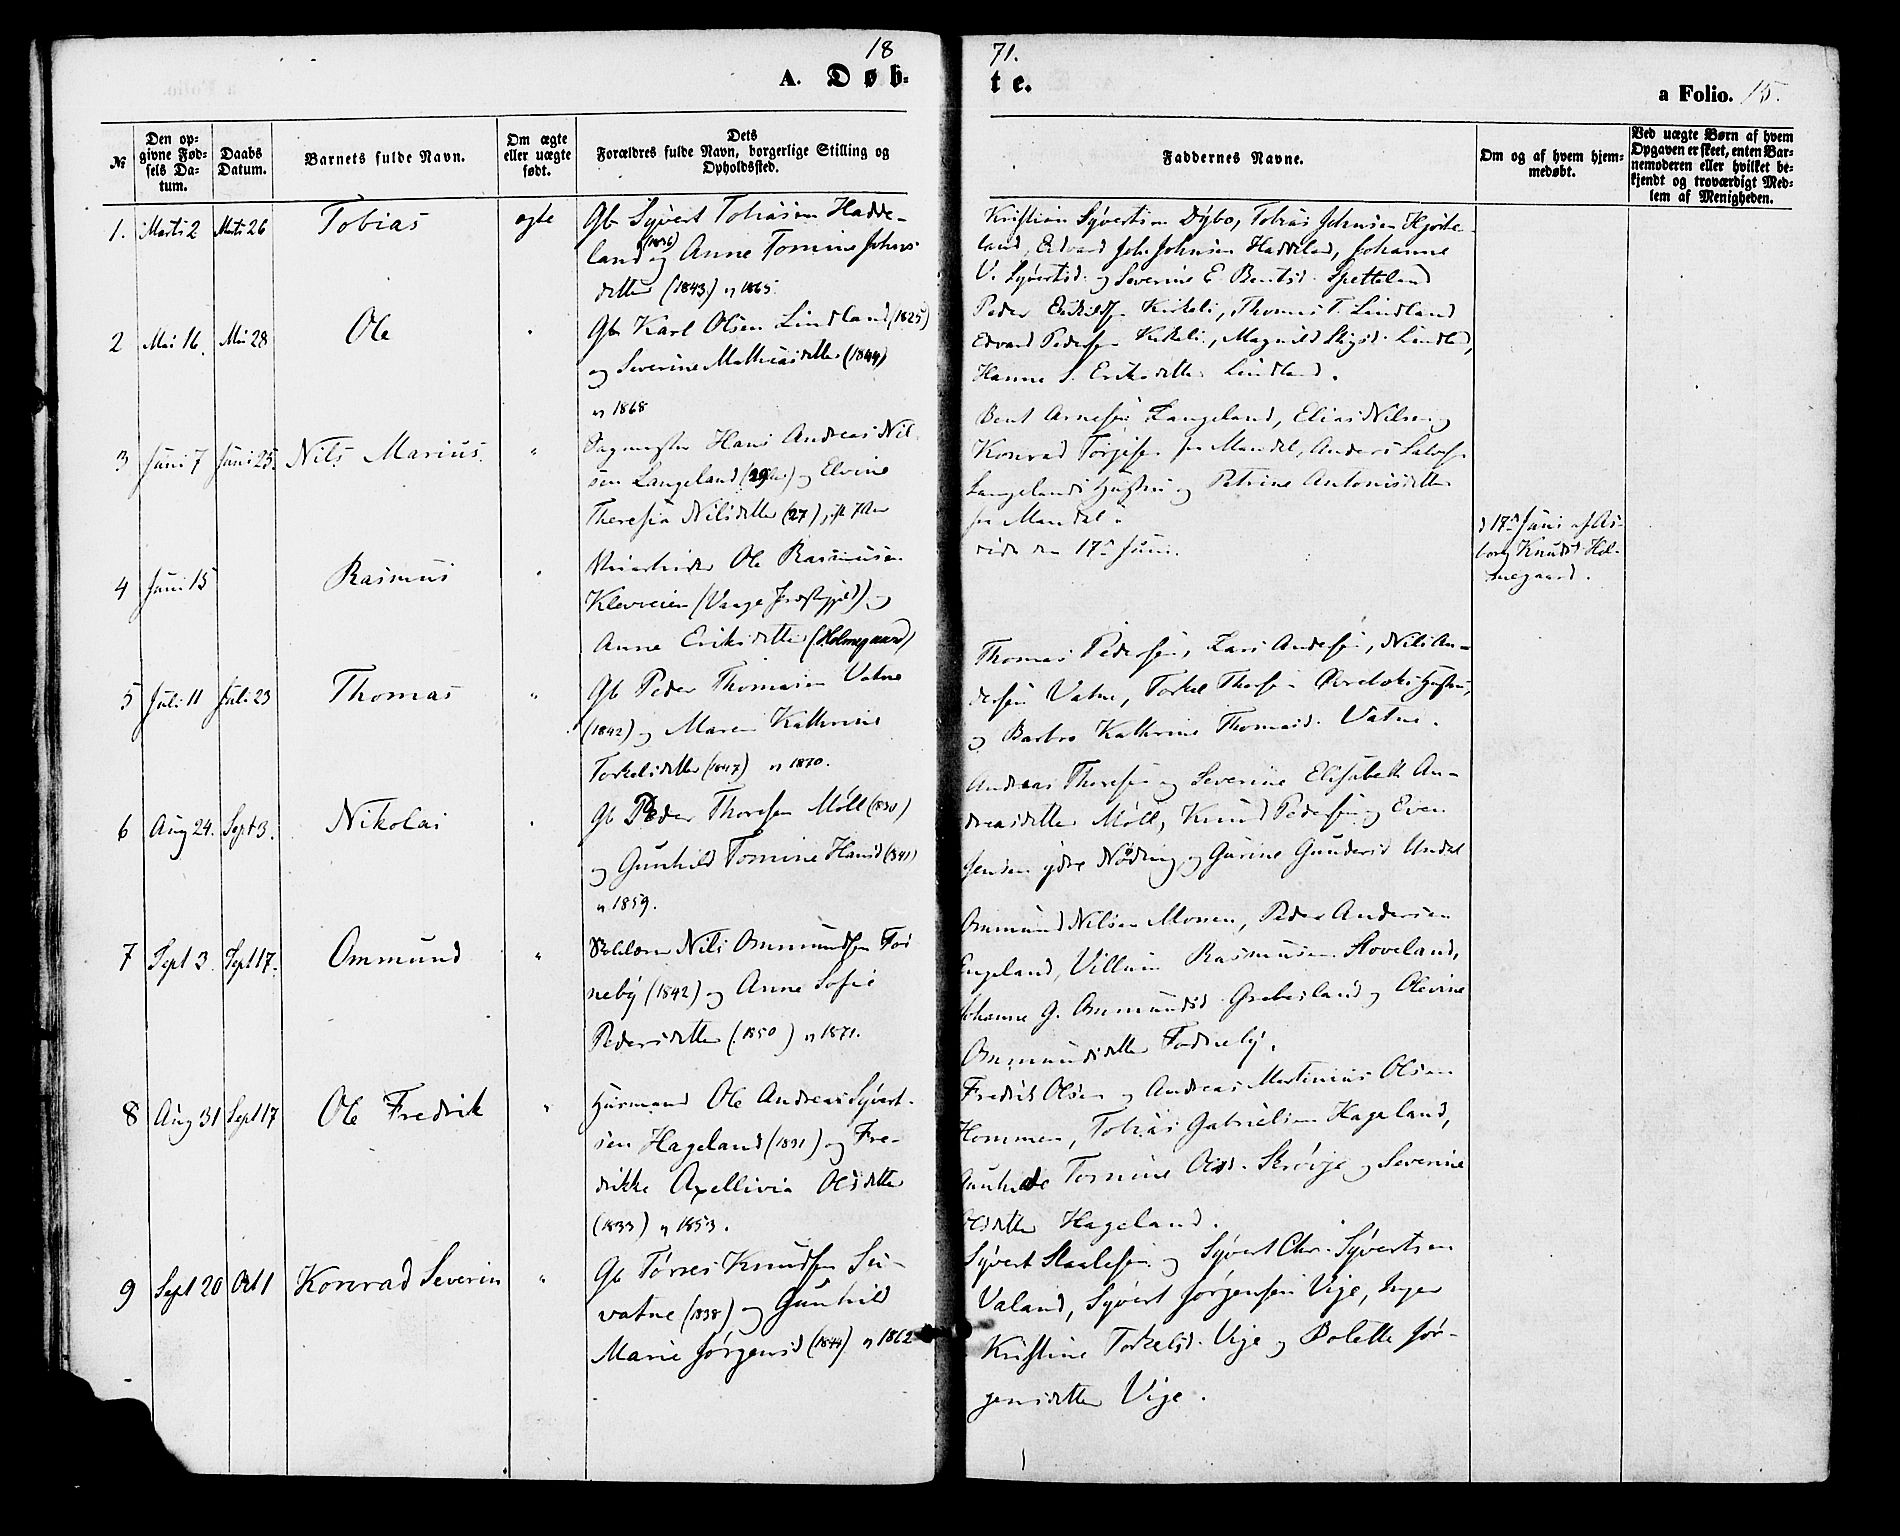 18 71.
A. Døb- te.
a Folio. 15.
№
Den op-
givne Fød-
sels Da-
tum.
Daabs
Datum.
Barnets fulde Navn.
Om ægte
eller uægte
født.
Dets
Forældres fulde Navn, borgerlige Stilling og
Opholdssted.
Faddernes Navne.
Om og af hvem hjem-
medøbt.
Ved uægte Børn af hvem
Opgaven er skeet, enten Bar-
nemoderen eller hvilket be-
kjendt og troværdigt Med-
lem af Menigheden.
1. Marts 2 Mts 26 Tobias egte
Gb Syvert Tobiasen Hadde-
land (1836) og Anne Tomine Johns-
datter (1843) " 1865.
Kristian Syvertsen Dybo, Tobias Johnsen
land, Edvard Johnsen Haddeland, Johanne
V. Syvertsd. og Severine E. Bentsd. Spetteland
2 Mai 16. Mai 28 Ole "
Gb Karl Olsen Lindland (1825)
og Severine Mathiasdatter (1844)
" 1868
Peder Kirkeli, Thomas T. Lindland
Edvard Pedersen Kirkeli, Magnild Lindland,
Hanne S. Eriksdatter Lindland.
3 Juni 7 Juni 25. Nils Marius. "
Hans Andreas Nil-
sen Langeland (29) og Elvine
Thersia Nilsdatter (27),
Bent Arnesen Langeland, Elias Nilsen og
Konrad Torjesen fra Mandal, Anders
Langelands Hustru og Petrine Antonisdatter
fra Mandal.
4 Juni 15 Rasmus "
Ole Rasmussen
Klevveien (Vange Præstegjeld) og
Anne Eriksdatter (Holmegaard)
døde den 17de Juni.
d 17de Juni af As-
borg Knudsd. Hol-
megaard.
5 Juli 11 Juli 23 Thomas "
Gb Peder Thomasen Vatne
(1842) og Maren Kathrine
Torkelsdatter (1847) " 1870.
Thomas Pedersen, Lars Andersen, Nils An-
dersen Vatne, Torkel Hustru,
og Barbro Kathrine Thomasd. Vatne.
6 Aug 24. Sept 3. Nikolai "
Gb Peder Thoresen Møll (1830)
og Gunhild Tomine Hansd (341)
" 1859.
Andreas Thoresen og Severine Elisabeth An-
dreasdatter Møll, Knud Pedersen og Even
Jensen ydre Nøding og Gurine Gundersd Undal
7 Sept 3. Sept 17. Ommund "
Nils Ommundsen Fos-
neby (1842) og Anne Sofie
Pedersdatter (1850) " 1871.
Ommund Nilsen Monen, Peder Andersen
Engeland, Villum Rasmussen Stoveland,
Johanne G. Ommundsd. Grebesland og Olevine
Ommundsdatter Fodneby.
8 Aug 31 Sept 17 Ole Fredrik "
Husmand Ole Andreas Syvert-
sen Hageland (1831) og Fre-
drikke Axellivia Olsdatter
(1833) " 1853.
Fredrik Olsen og Andreas Martinius Olsen
Hommen, Tobias Gabrielsen Hageland,
Gunhilde Tomine Olsd. Skrøvje og Severine
Olsdatter Hageland.
9 Sept 20 Okt 1 Konrad Severin "
Gb Tørres Knudsen Su-
vatne (1838) og Gunhild
Marie Jørgensd (1844) " 1862
Syvert Staalesen og Syvert Chr. Syvertsen
Valand, Syvert Jørgensen Vige, Inger
Kristine Torkelsd. Vige og Bolette Jør-
gensdatter Vige.